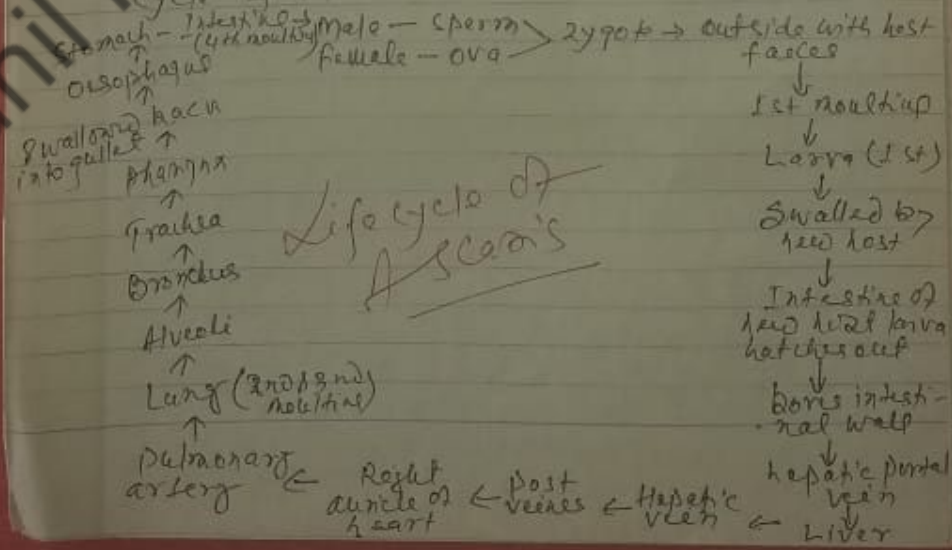 Intestine →
Stomach - (4th moulting) Male - sperm
female - ova
zygote → outside with host
faeces
↓
1st moulting
↓
Larva (1st)
↓
Swalled by
new host
↓
Intestine of
new host larva
hatches out
↓
Bores intesti-
nal wall
↓
hepatic portal
vein
↓
Liver
← Hepatic
vein
← Post
veines
← Right
auricle of
heart
← Pulmonary
artery
↑
Lung (2nd & 3rd
moulting)
↑
Alveoli
↑
Bronchus
↑
Trachea
↑
Pharynx
↑
Swallowed back
into gullet
↑
Oesophagus
↑
Lifecycle of
Ascaris